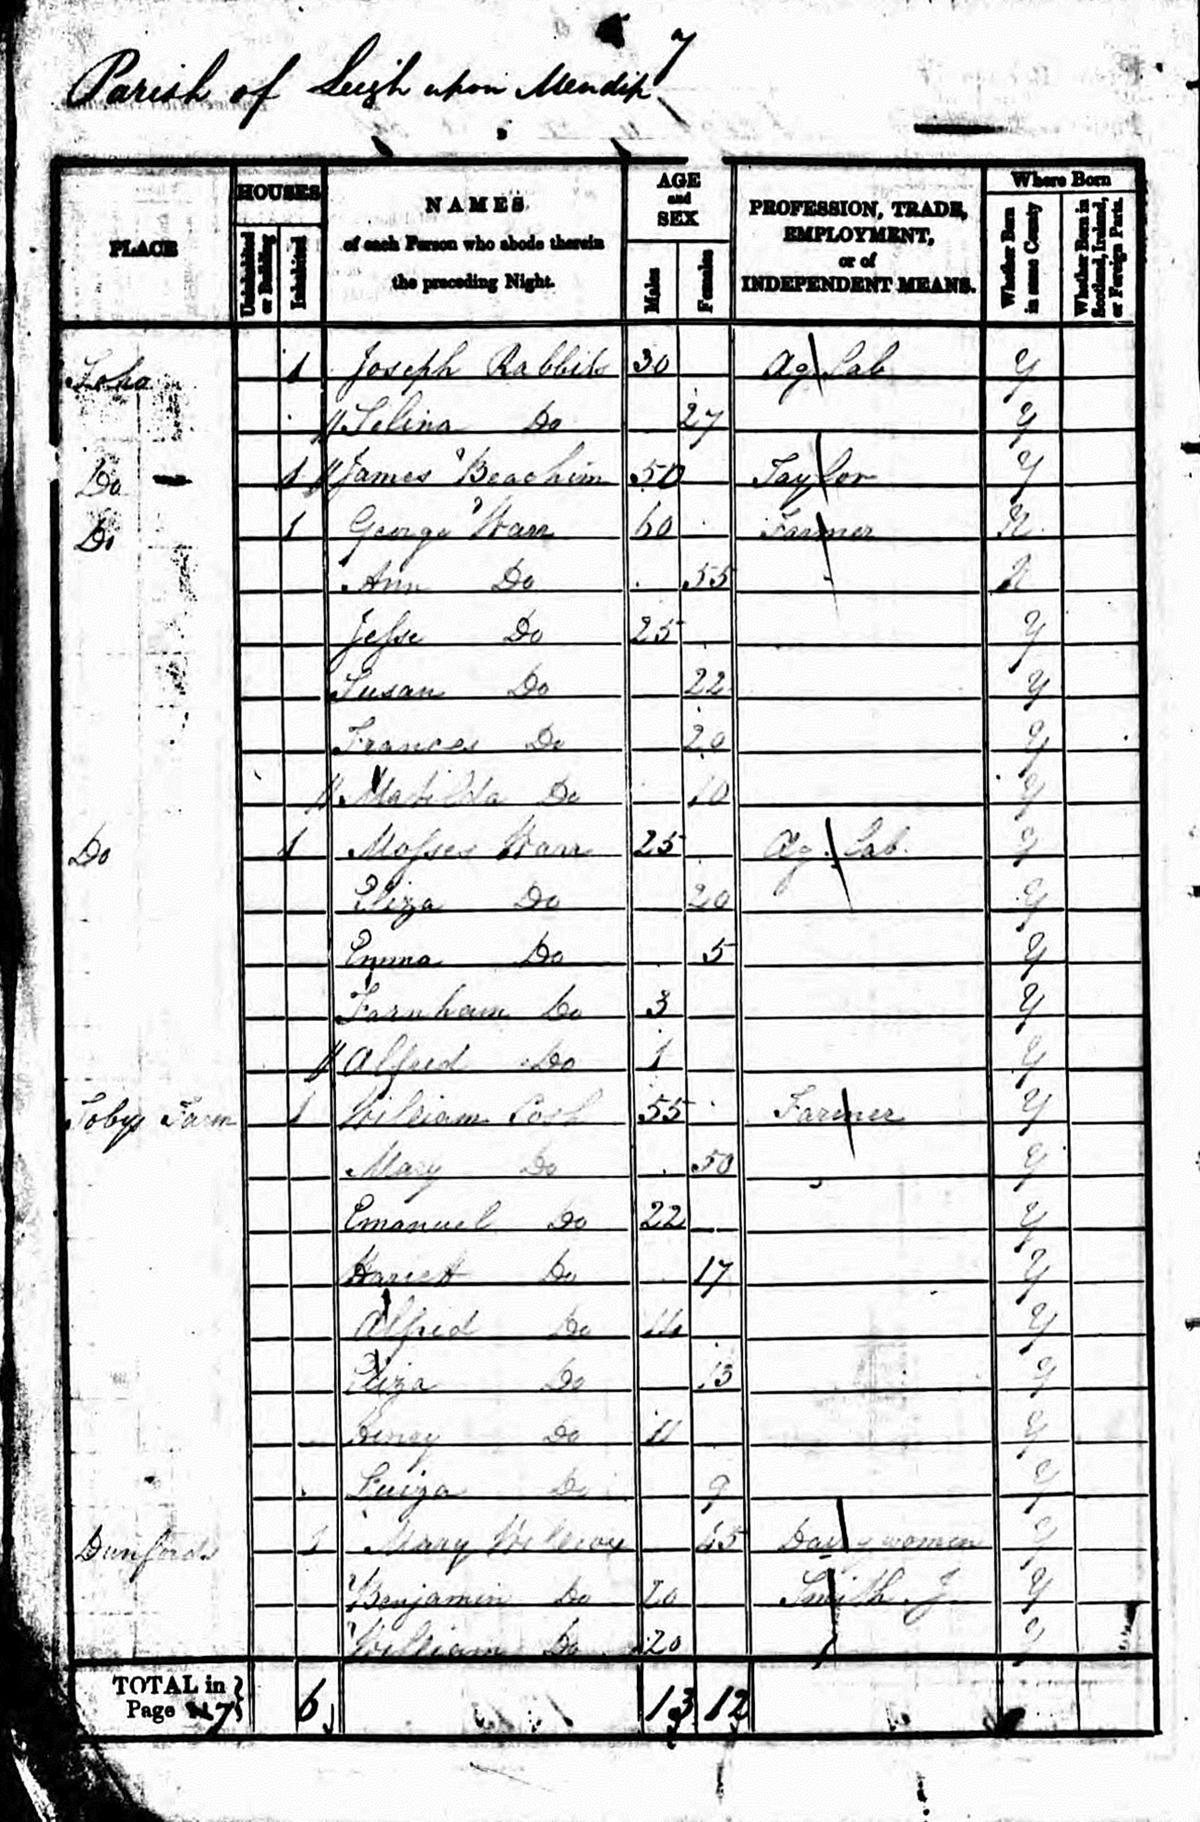 7
Parish of Leigh upon Mendip
PLACE
HOUSES
Uninhabited or Building
Inhabited
NAMES
of each Person who abode therein
the preceding Night.
AGE
and
SEX
Males
Females
PROFESSION, TRADE,
EMPLOYMENT,
or of
INDEPENDENT MEANS.
Where Born
Whether Born in same County
Whether Born in Scotland, Ireland, or Foreign Parts.
1 Joseph Rabbits 30 Ag Lab Y
Selina Do 27 Y
Do 1 James Beachim 50 Taylor Y
Do 1 George Warr 60 Farmer N
Ann Do 55 N
Jesse Do 25 Y
Susan Do 22 Y
Frances Do 20 Y
Matilda Do 10 Y
Do 1 Mosses Warr 25 Ag. Lab. Y
Eliza Do 20 Y
Emma Do 5 Y
Farnham Do 3 Y
Alfred Do 1 Y
Tobys Farm 1 William Cosh 55 Farmer Y
Mary Do 50 Y
Emanuel Do 22 Y
Hariet Do 17 Y
Alfred Do Y
Eliza Do 13 Y
Henry Do 11 Y
Luiza Do 9 Y
Dunfords 1 Mary 45 Dairy women Y
Benjamin Do 20 Smith J Y
William Do 20 Y
TOTAL in
Page 7 } 6 13 12